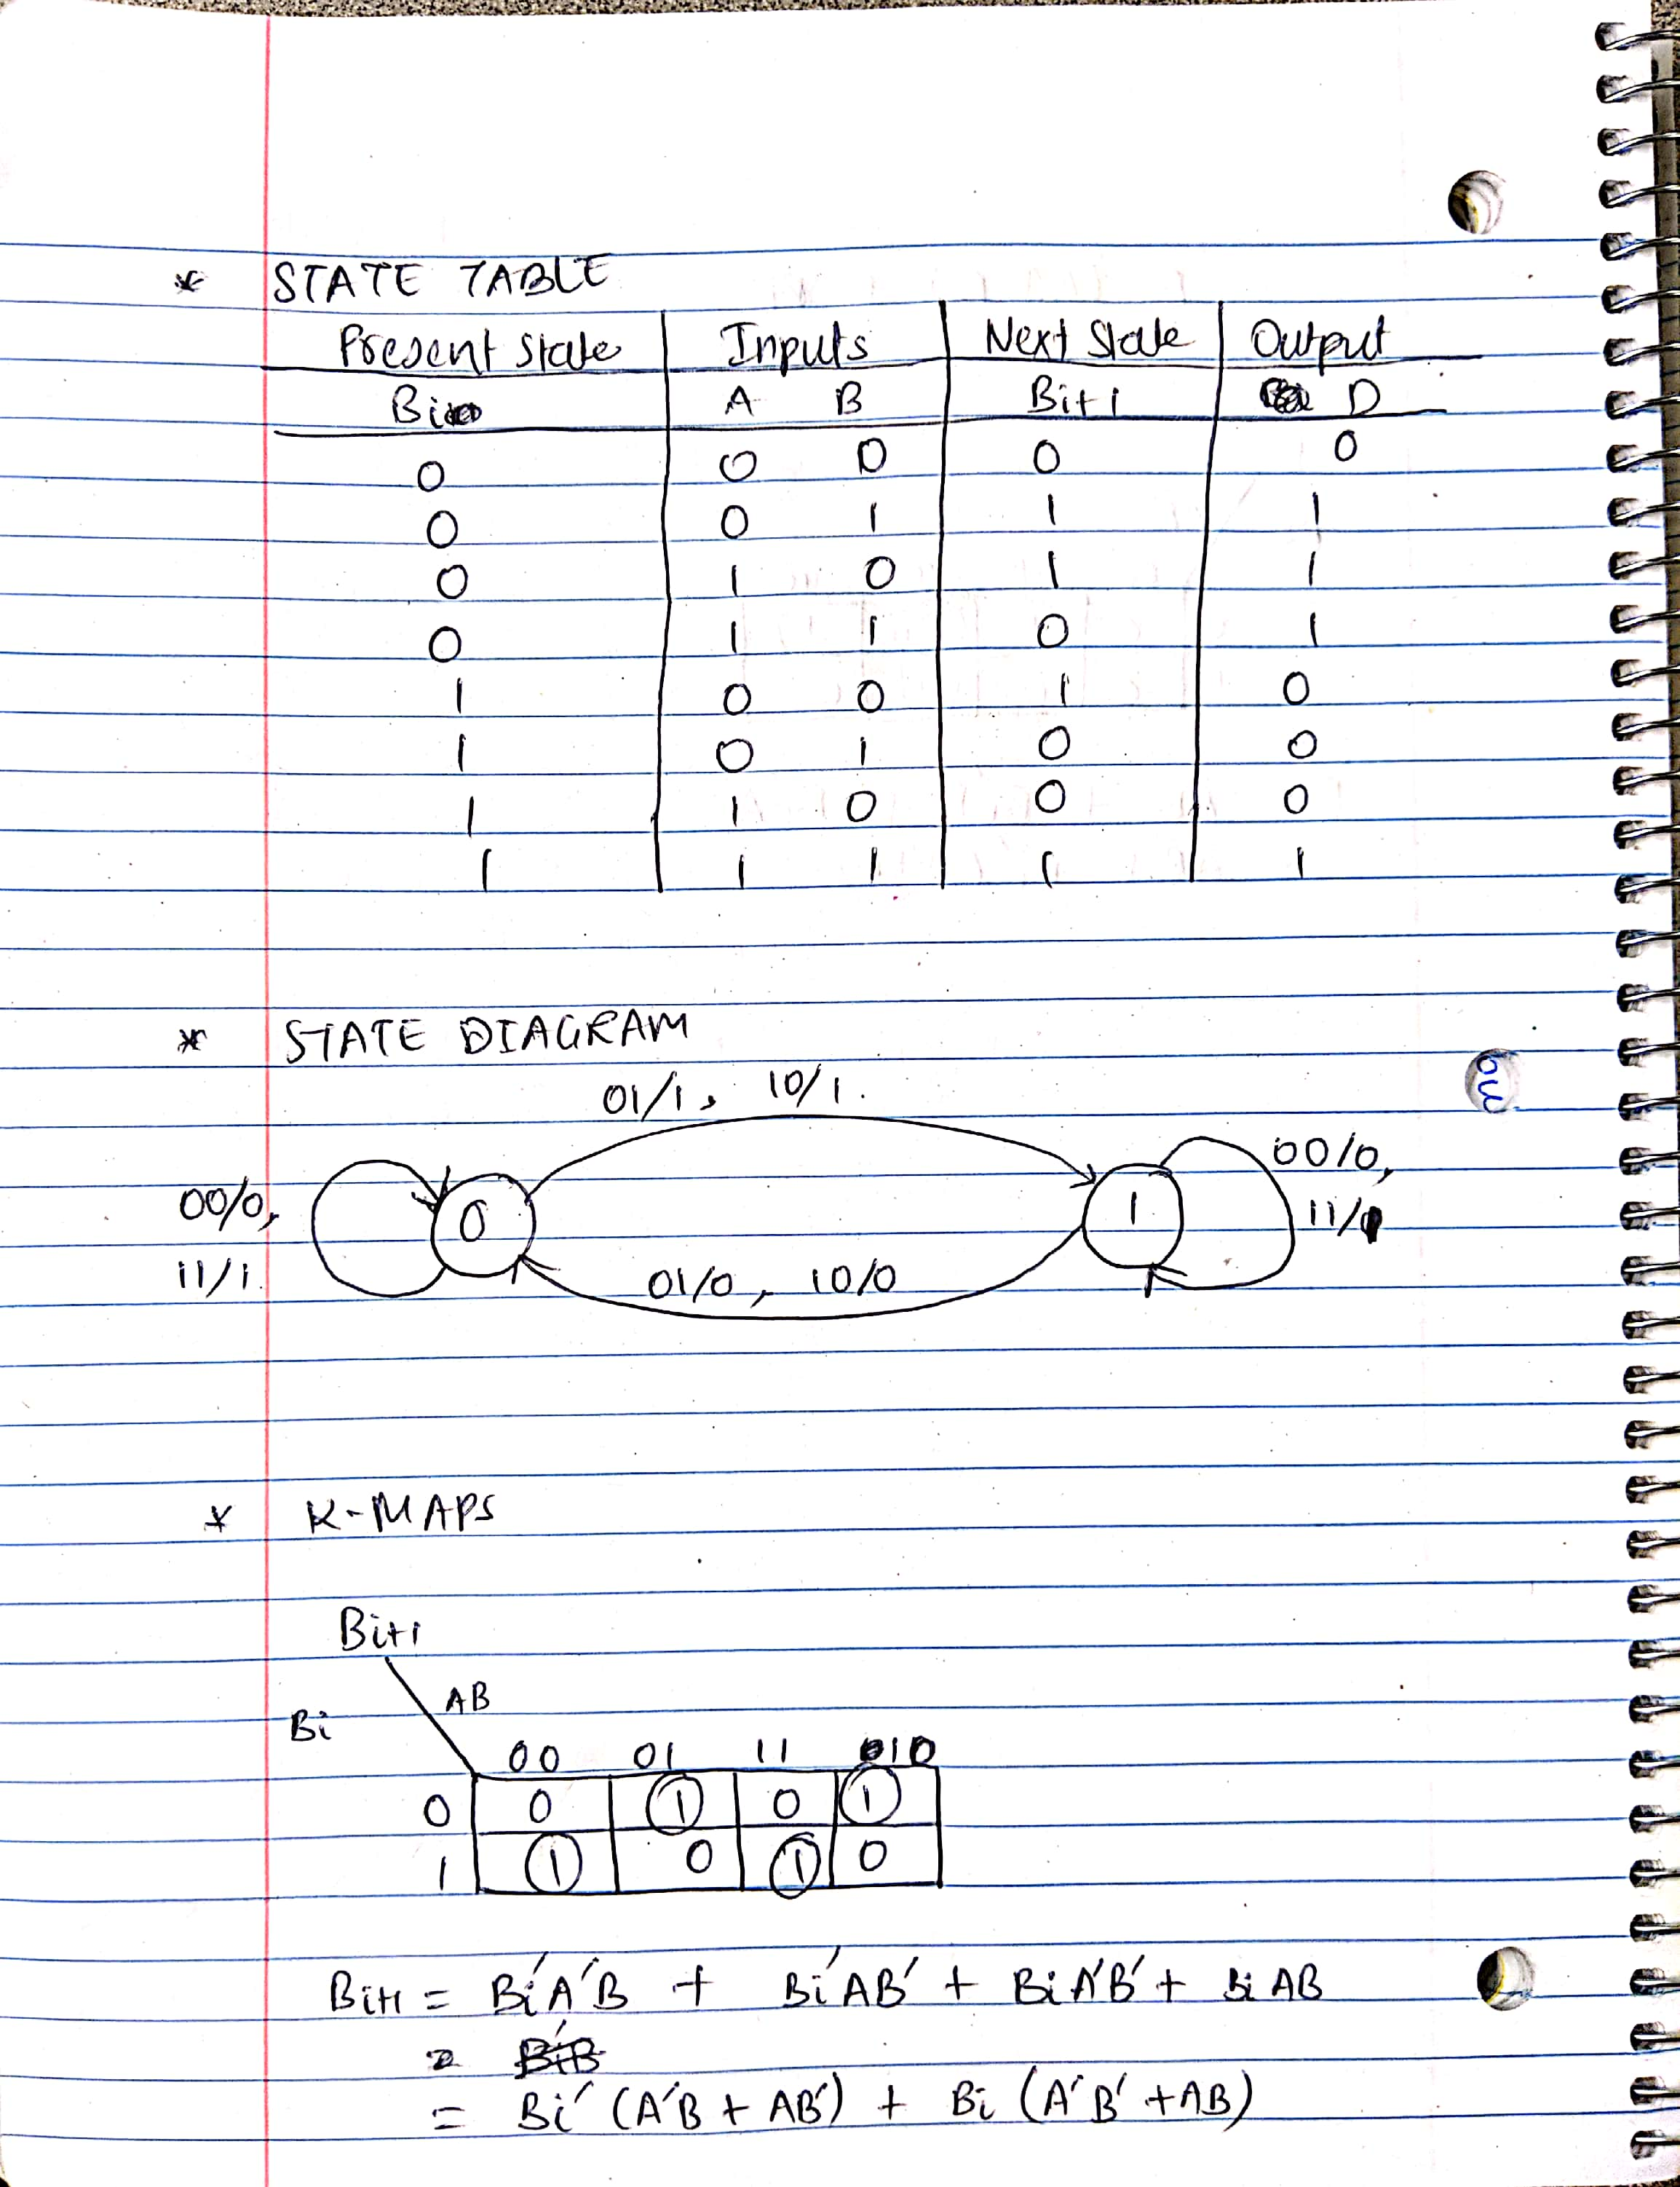 * STATE TABLE
Present State Inputs Next State Output
Bi A B Bi+1 D
0 0 0 0 0
0 0 1 1 1
0 1 0 1 1
0 1 1 0 1
1 0 0 1 0
1 0 1 0 0
1 1 0 0 0
1 1 1 1 1
* STATE DIAGRAM
01/1, 10/1.
00/0,
11/1.
0
1
00/0,
11/1
01/0, 10/0
* K-MAPS
Bi+1
AB
Bi
00 01 11 10
0 0 1 0 1
1 1 0 1 0
Bi+1 = Bi'A'B + Bi'AB' + BiA'B' + BiAB
=
= Bi' (A'B + AB') + Bi (A'B' + AB)